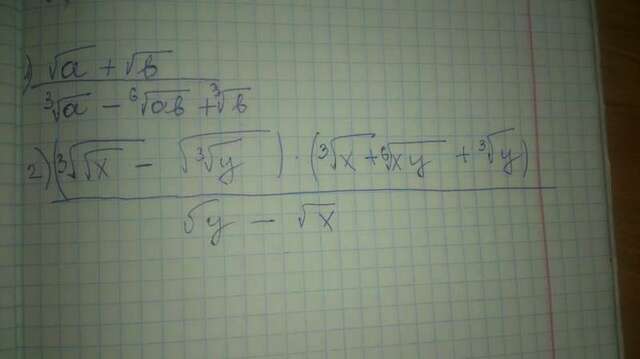 1) √a + √b
³√a − ⁶√ab + ³√b
2) (³√√x − √³√y) · (³√x + ⁶√xy + ³√y)
√y − √x